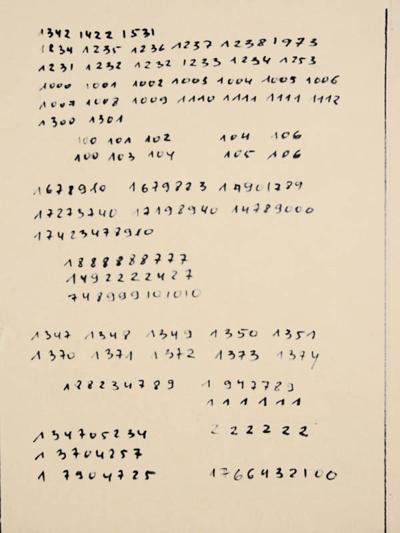 1342 1422 1531
1234 1235 1236 1237 1238 1973
1231 1232 1232 1233 1234 1253
1000 1001 1002 1003 1004 1005 1006
1007 1008 1009 1110 1111 1111 1112
1300 1301
100 101 102 104 106
100 103 104 105 106
1678910 1679823 17901789
17273740 17198940 14789000
17423478910
1888888777
1492222427
748999101010
1347 1348 1349 1350 1351
1370 1371 1372 1373 1374
128234789 1947789
111111
134705234 222222
13704257
17904725 1766432100